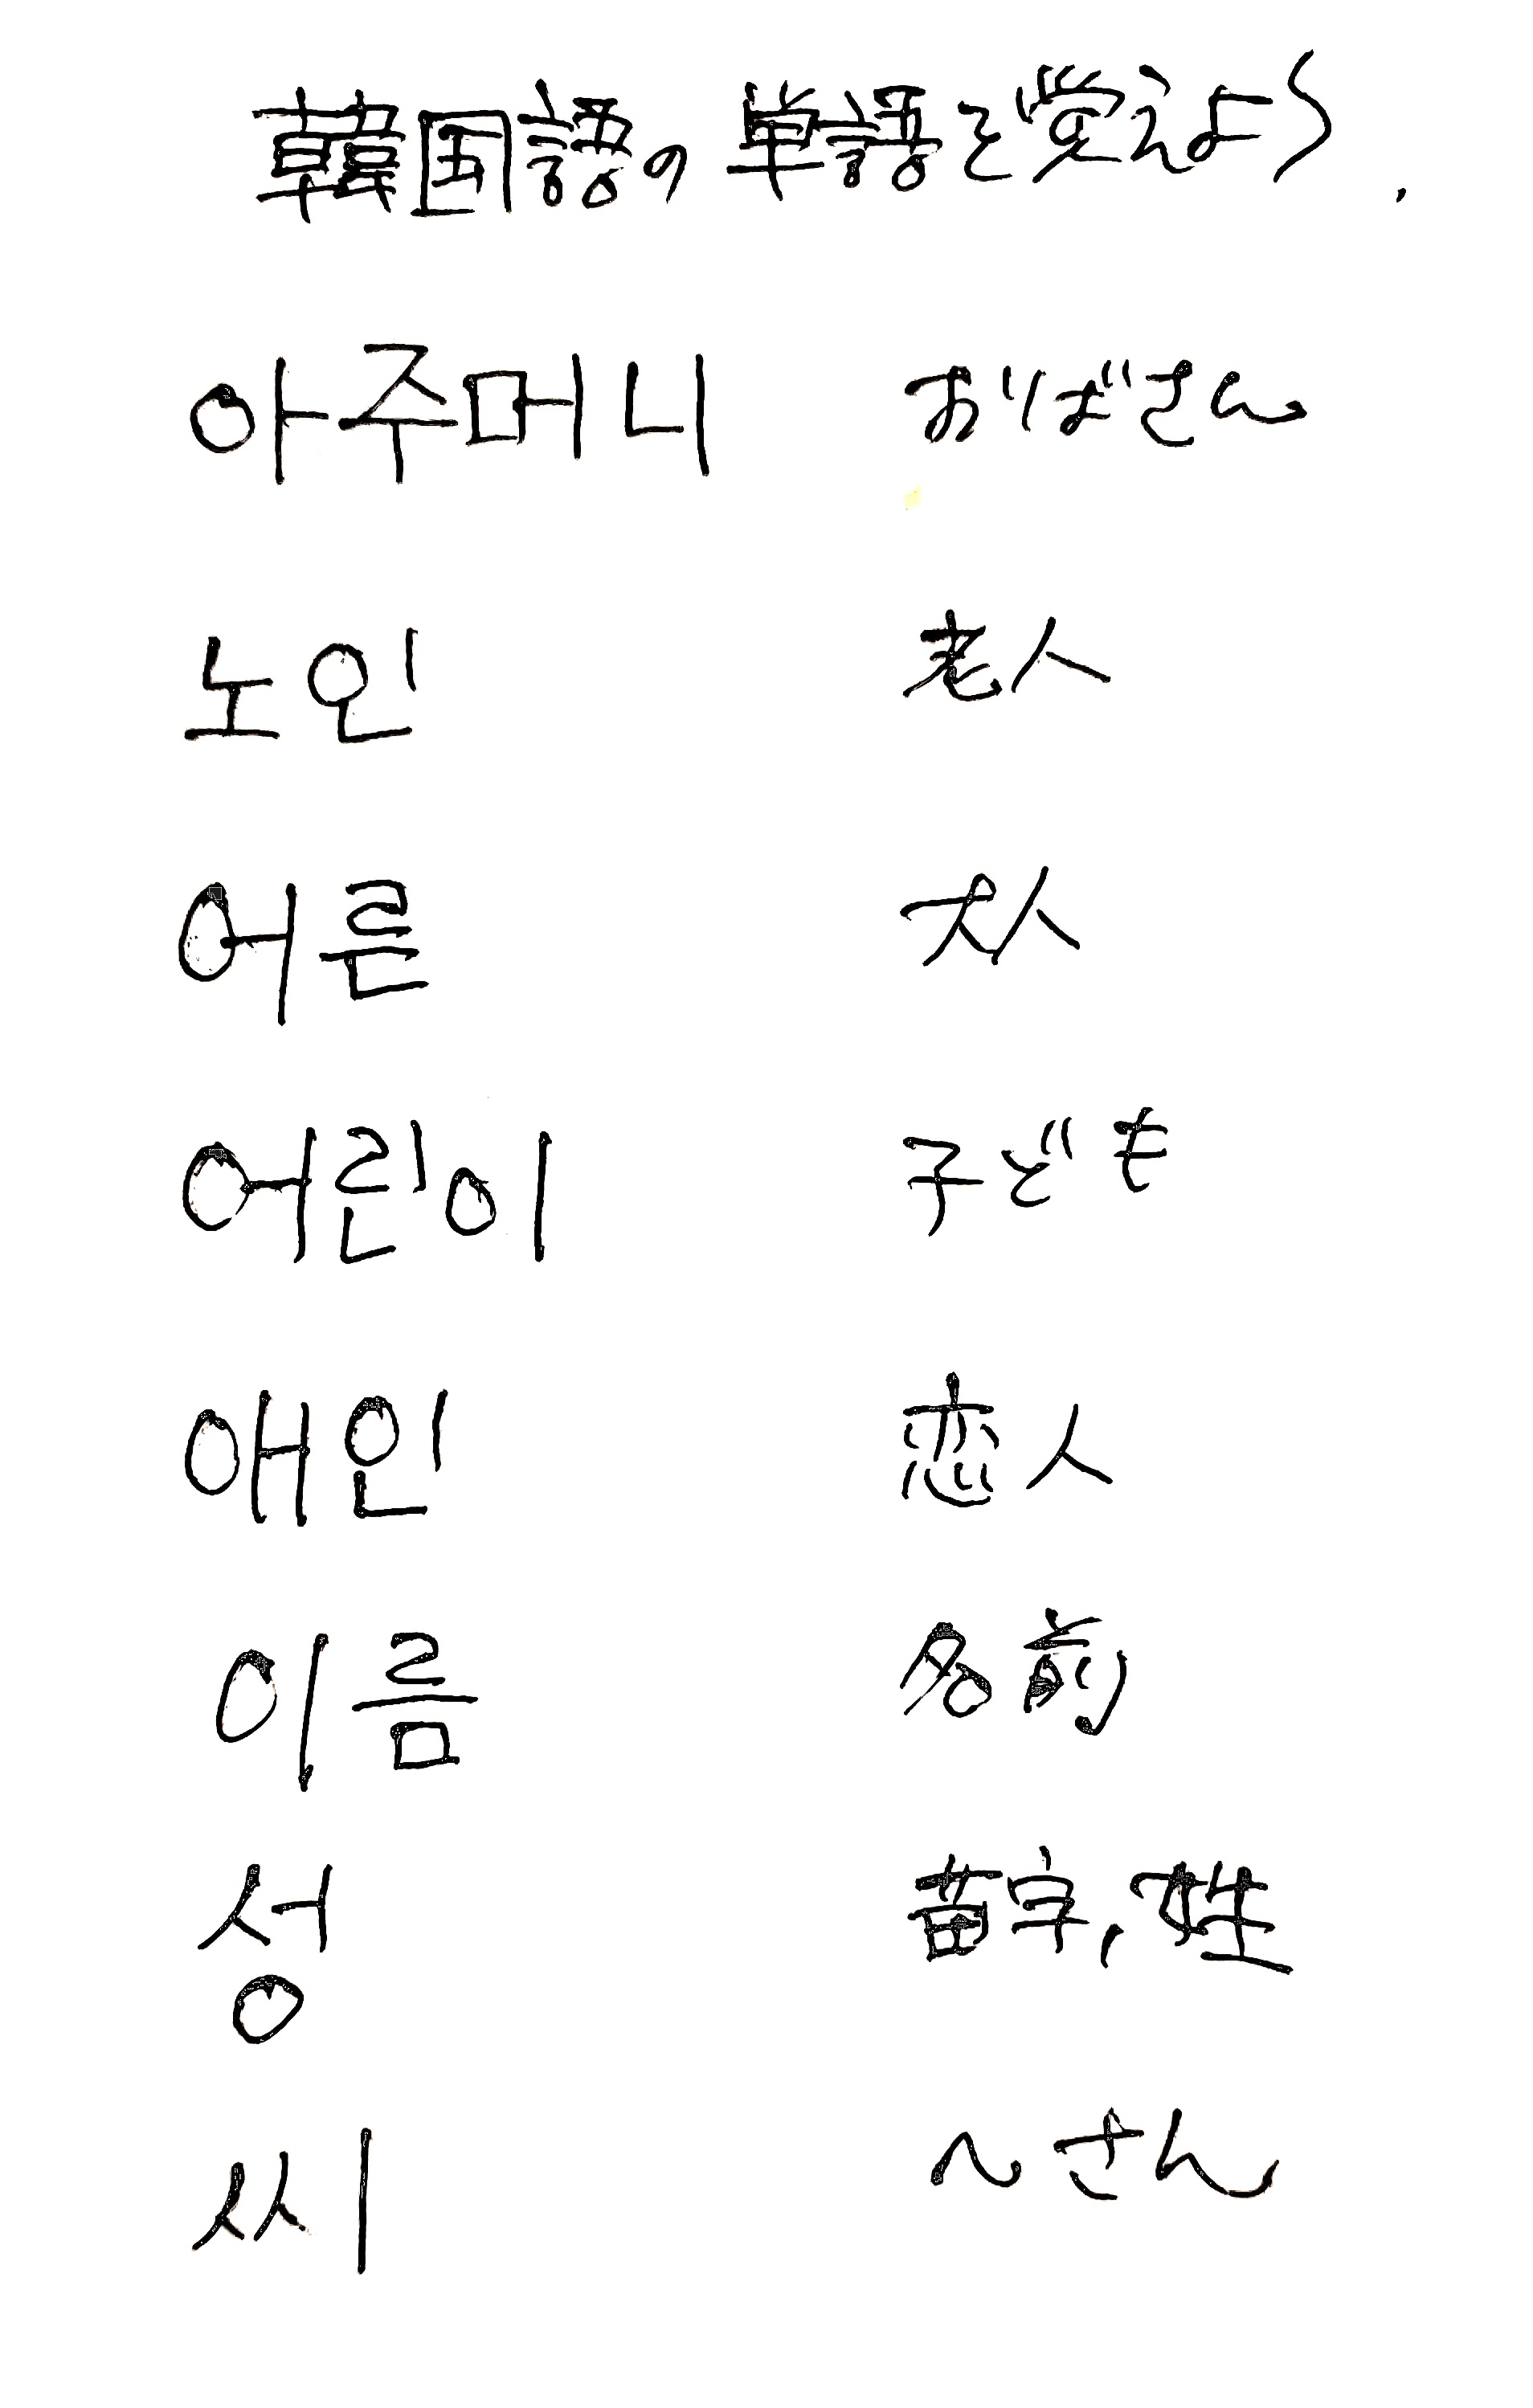 韓国語の単語を覚えよう.
아주머니 おばさん
노인 老人
어른 大人
어린이 子ども
애인 恋人
이름 名前
성 苗字,姓
씨 〜さん